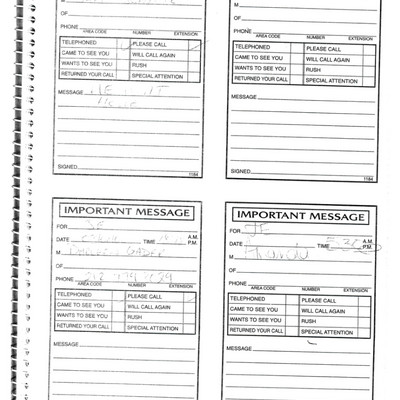 M
OF
PHONE
AREA CODE NUMBER EXTENSION
TELEPHONED PLEASE CALL
CAME TO SEE YOU WILL CALL AGAIN
WANTS TO SEE YOU RUSH
RETURNED YOUR CALL SPECIAL ATTENTION
MESSAGE
SIGNED
1184
M
OF
PHONE
AREA CODE NUMBER EXTENSION
TELEPHONED PLEASE CALL
CAME TO SEE YOU WILL CALL AGAIN
WANTS TO SEE YOU RUSH
RETURNED YOUR CALL SPECIAL ATTENTION
MESSAGE
SIGNED
1184
IMPORTANT MESSAGE
FOR JE
DATE TIME A.M. P.M.
M
OF
PHONE
AREA CODE NUMBER EXTENSION
TELEPHONED PLEASE CALL
CAME TO SEE YOU WILL CALL AGAIN
WANTS TO SEE YOU RUSH
RETURNED YOUR CALL SPECIAL ATTENTION
MESSAGE
IMPORTANT MESSAGE
FOR JE
DATE TIME A.M. P.M.
M
OF
PHONE
AREA CODE NUMBER EXTENSION
TELEPHONED PLEASE CALL
CAME TO SEE YOU WILL CALL AGAIN
WANTS TO SEE YOU RUSH
RETURNED YOUR CALL SPECIAL ATTENTION
MESSAGE